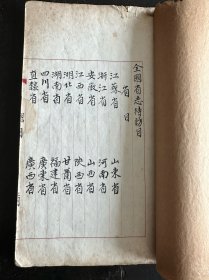 全國省志待訪目
省目
江蘇省
浙江省
安徽省
江西省
湖北省
湖南省
四川省
直隸省
山東省
河南省
山西省
陝西省
甘肅省
福建省
廣東省
廣西省